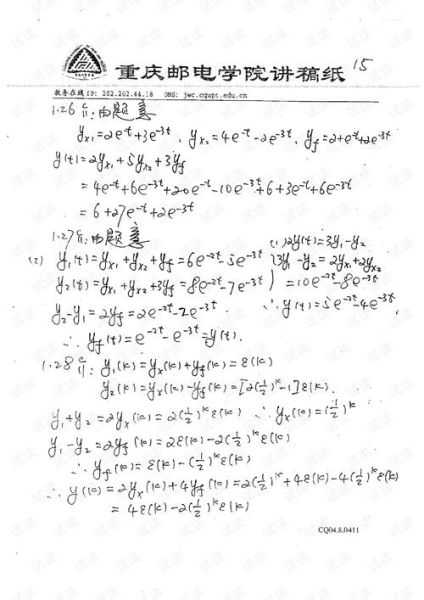 重庆邮电学院讲稿纸 15
教务在线 IP: 202.202.44.18 DNS: jwc.cqupt.edu.cn
1.26 解: 由题意
yx1=2e^-t+3e^-3t, yx2=4e^-t-2e^-3t, yf=2+e^-t+2e^-3t
y(t)=2yx1+5yx2+3yf
=4e^-t+6e^-3t+20e^-t-10e^-3t+6+3e^-t+6e^-3t
=6+27e^-t+2e^-3t
1.27 解: 由题意 (1) 2y(t)=3y1-y2
(2) y1(t)=yx1+yx2+yf=6e^-2t-5e^-3t 3y1-y2=2yx1+2yx2
y2(t)=yx1+yx2+3yf=8e^-2t-7e^-3t =10e^-2t-8e^-3t
y2-y1=2yf=2e^-2t-2e^-3t ∴ y(t)=5e^-2t-4e^-3t
∴ yf(t)=e^-2t-e^-3t=y(t).
1.28 解: y1(k)=yx(k)+yf(k)=ε(k)
y2(k)=yx(k)-yf(k)=[2(1/2)^k-1]ε(k).
y1+y2=2yx(k)=2(1/2)^k ε(k) ∴ yx(k)=(1/2)^k
y1-y2=2yf(k)=2ε(k)-2(1/2)^k ε(k)
∴ yf(k)=ε(k)-(1/2)^k ε(k)
∴ y(k)=2yx(k)+4yf(k)=2(1/2)^k+4ε(k)-4(1/2)^k ε(k)
=4ε(k)-2(1/2)^k ε(k)
CQ04.8.0411